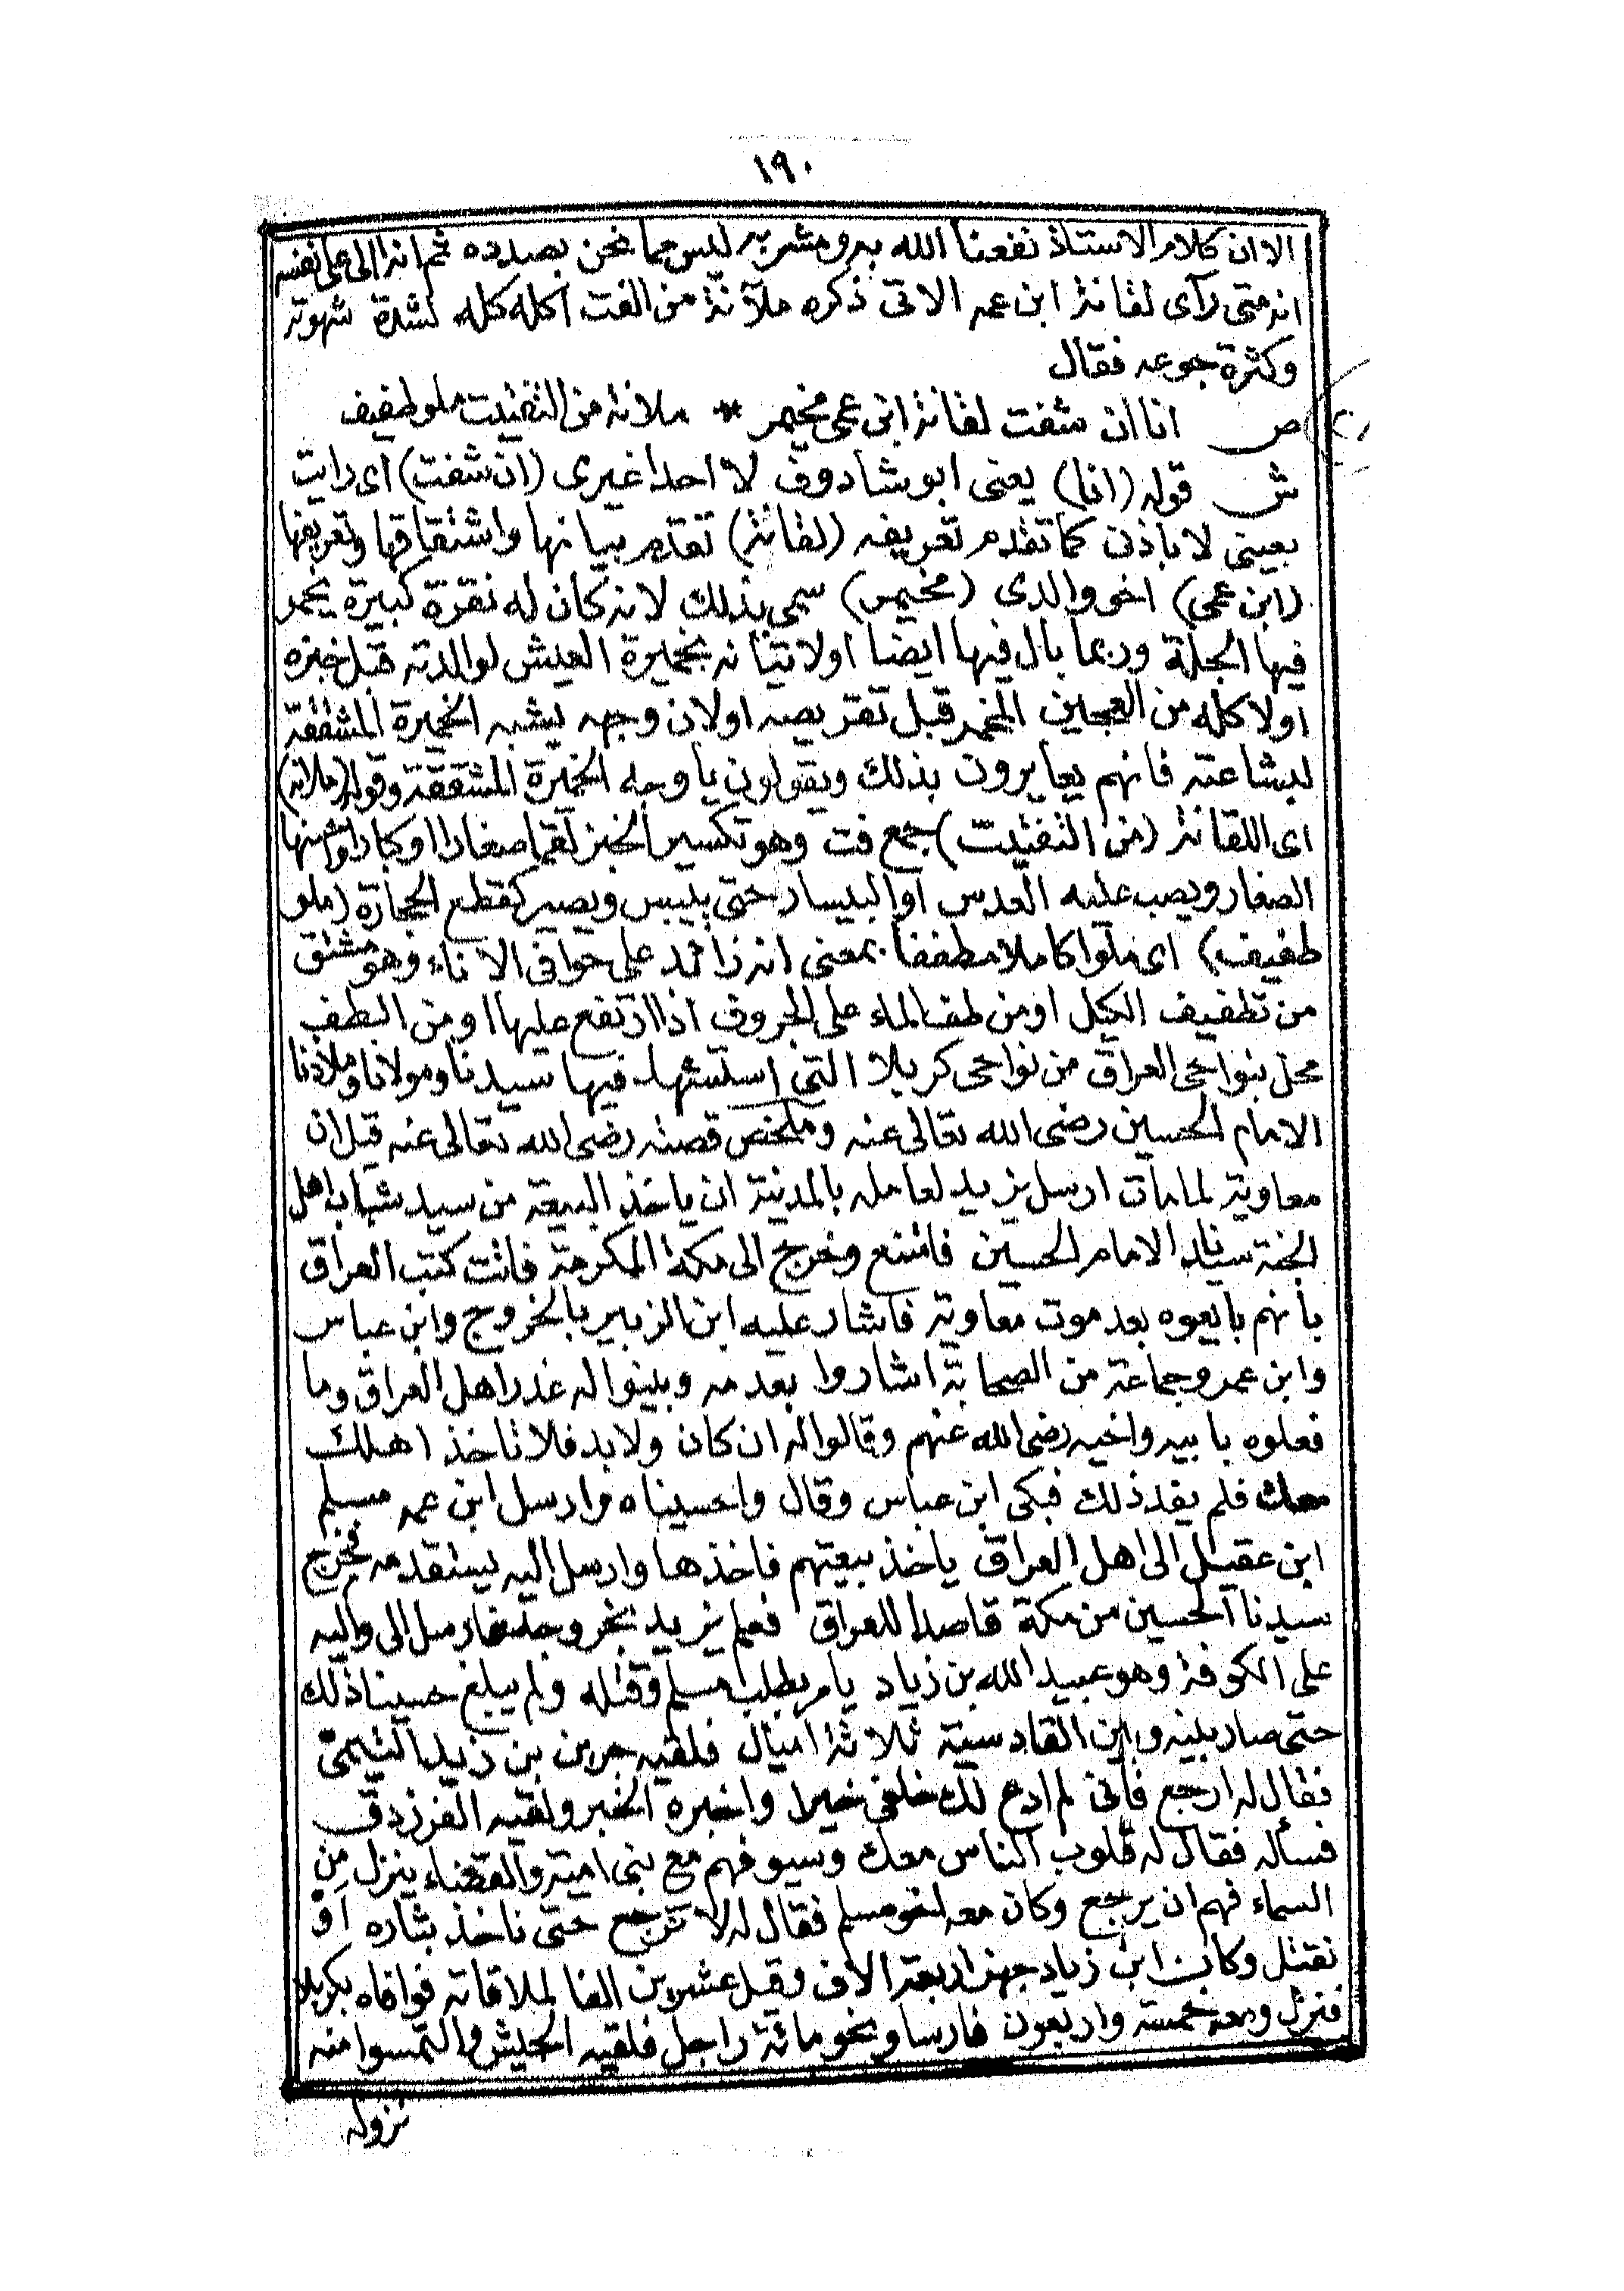 ١٩٠
الا ان كلام الاستاذ نفعنا الله به ومشربه ليس مما نحن بصدده ثم انه الى على نفسه
انه متى رآى لقانة ابن عمه الاتى ذكره ملآنة من الفت اكله كله لشدة شهوته
وكثرة جوعه فقال
ص انا ان شفت لقانة ابن عمى مخيمر * ملانة من التفتيت ملو طفيف
ش قوله (انا) يعنى ابو شادوف لا احدا غيرى (ان شفت) اى رايت
بعينى لا باذنى كما تقدم تعريفه (لقانة) تقدم بيانها واشتقاقها وتعريفها
(ابن عمى) اخو والدى (مخيمر) سمى بذلك لانه كان له نقرة كبيرة يخمر
فيها الجلة وربما بال فيها ايضا او لاتيانه بخميرة العيش لوالدته قبل خبزه
او لاكله من العجين المخمر قبل تقريصه او لان وجهه يشبه الخميرة المشققة
لبشاعته فانهم يعايرون بذلك ويقولون يا وجه الخميرة المشققة وقوله (ملانه)
اى اللقانة (من التفتيت) جمع فت وهو تكسير الخبز لقما صغارا او كبارا واحسنها
الصغار ويصب عليه العدس او البيسار حتى ييبس ويصير كقطع الحجارة (ملو
طفيف) اى ملوا كاملا مطففا بمعنى انه زائد على حوافى الاناء وهو مشتق
من تطفيف الكيل او من طف الماء على الجروف اذا ارتفع عليها او من الطف
محل بنواحى العراق من نواحى كربلا التى استشهد فيها سيدنا ومولانا وملاذنا
الامام الحسين رضى الله تعالى عنه وملخص قصته رضى الله تعالى عنه قبل ان
معاوية لما مات ارسل يزيد لعامله بالمدينة ان ياخذ البيعة من سيد شباب اهل
الجنة سيدنا الامام الحسين فامتنع وخرج الى مكة المكرمة فاتت كتب العراق
بأنهم بايعوه بعد موت معاوية فاشار عليه ابن الزبير بالخروج وابن عباس
وابن عمر وجماعة من الصحابة اشاروا بعدمه وبينوا له غدر اهل العراق وما
فعلوه بابيه واخيه رضى الله عنهم وقالوا له ان كان ولابد فلا تاخذ اهلك
معك فلم يفد ذلك فبكى ابن عباس وقال واحسيناه وارسل ابن عمه مسلم
ابن عقيل الى اهل العراق ياخذ بيعتهم فاخذها وارسل اليه يستقدمه فخرج
سيدنا الحسين من مكة قاصدا للعراق فعلم يزيد بخروجه فارسل الى واليه
على الكوفة وهو عبيد الله بن زياد يامر بطلب مسلم وقتله ولم يبلغ حسينا ذلك
حتى صار بينه وبين القادسية ثلاثة اميال فلقيه حر بن زيد التيمى
فقال له ارجع فانى لم ادع لك خلفى خيرا واخبره الخبر ولقيه الفرزدق
فسأله فقال له قلوب الناس معك وسيوفهم مع بنى امية والقضاء ينزل من
السماء فهم ان يرجع وكان معه اخو مسلم فقال له لا ترجع حتى ناخذ بثاره او
نقتل وكان ابن زياد جهز اربعة الاف وقيل عشرين الفا لملاقاته فوافاه بكربلا
فنزل ومعه خمسة واربعون فارسا ونحو مائة راجل فلقيه الجيش والتمسوا منه
نزوله